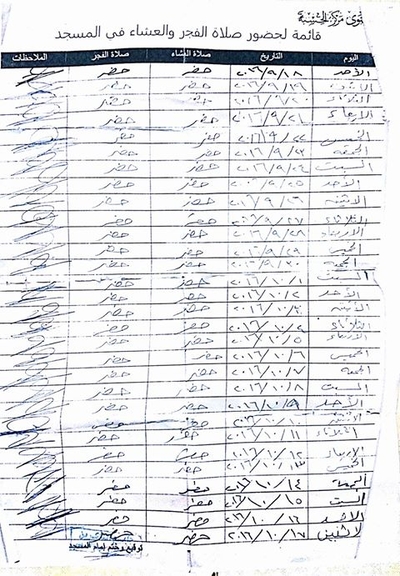 قائمة لحضور صلاة الفجر والعشاء في المسجد
اليوم التاريخ صلاة العشاء صلاة الفجر الملاحظات
الأحد ٢٠١٦/٩/١٨ حضر حضر
الاثنين ٢٠١٦/٩/١٩ حضر حضر
الثلاثاء ٢٠١٦/٩/٢٠ حضر حضر
الاربعاء ٢٠١٦/٩/٢١ حضر حضر
الخميس ٢٠١٦/٩/٢٢ حضر حضر
الجمعه ٢٠١٦/٩/٢٣ حضر حضر
السبت ٢٠١٦/٩/٢٤ حضر حضر
الأحد ٢٠١٦/٩/٢٥ حضر حضر
الاثنين ٢٠١٦/٩/٢٦ حضر حضر
الثلاثاء ٢٠١٦/٩/٢٧ حضر حضر
الاربعاء ٢٠١٦/٩/٢٨ حضر حضر
الخميس ٢٠١٦/٩/٢٩ حضر حضر
الجمعه ٢٠١٦/٩/٣٠ حضر حضر
السبت ٢٠١٦/١٠/١ حضر حضر
الأحد ٢٠١٦/١٠/٢ حضر حضر
الأثنين ٢٠١٦/١٠/٣ حضر حضر
الثلاثاء ٢٠١٦/١٠/٤ حضر حضر
الاربعاء ٢٠١٦/١٠/٥ حضر حضر
الخميس ٢٠١٦/١٠/٦ حضر حضر
الجمعه ٢٠١٦/١٠/٧ حضر حضر
السبت ٢٠١٦/١٠/٨ حضر حضر
الأحد ٢٠١٦/١٠/٩ حضر حضر
الاثنين ٢٠١٦/١٠/١٠ حضر حضر
الثلاثاء ٢٠١٦/١٠/١١ حضر حضر
الاربعاء ٢٠١٦/١٠/١٢ حضر حضر
الخميس ٢٠١٦/١٠/١٣ حضر حضر
الجمعة ٢٠١٦/١٠/١٤ حضر حضر
السبت ٢٠١٦/١٠/١٥ حضر حضر
الأحد ٢٠١٦/١٠/١٦ حضر حضر
الاثنين ٢٠١٦/١٠/١٧ حضر
توقيع وختم إمام المسجد